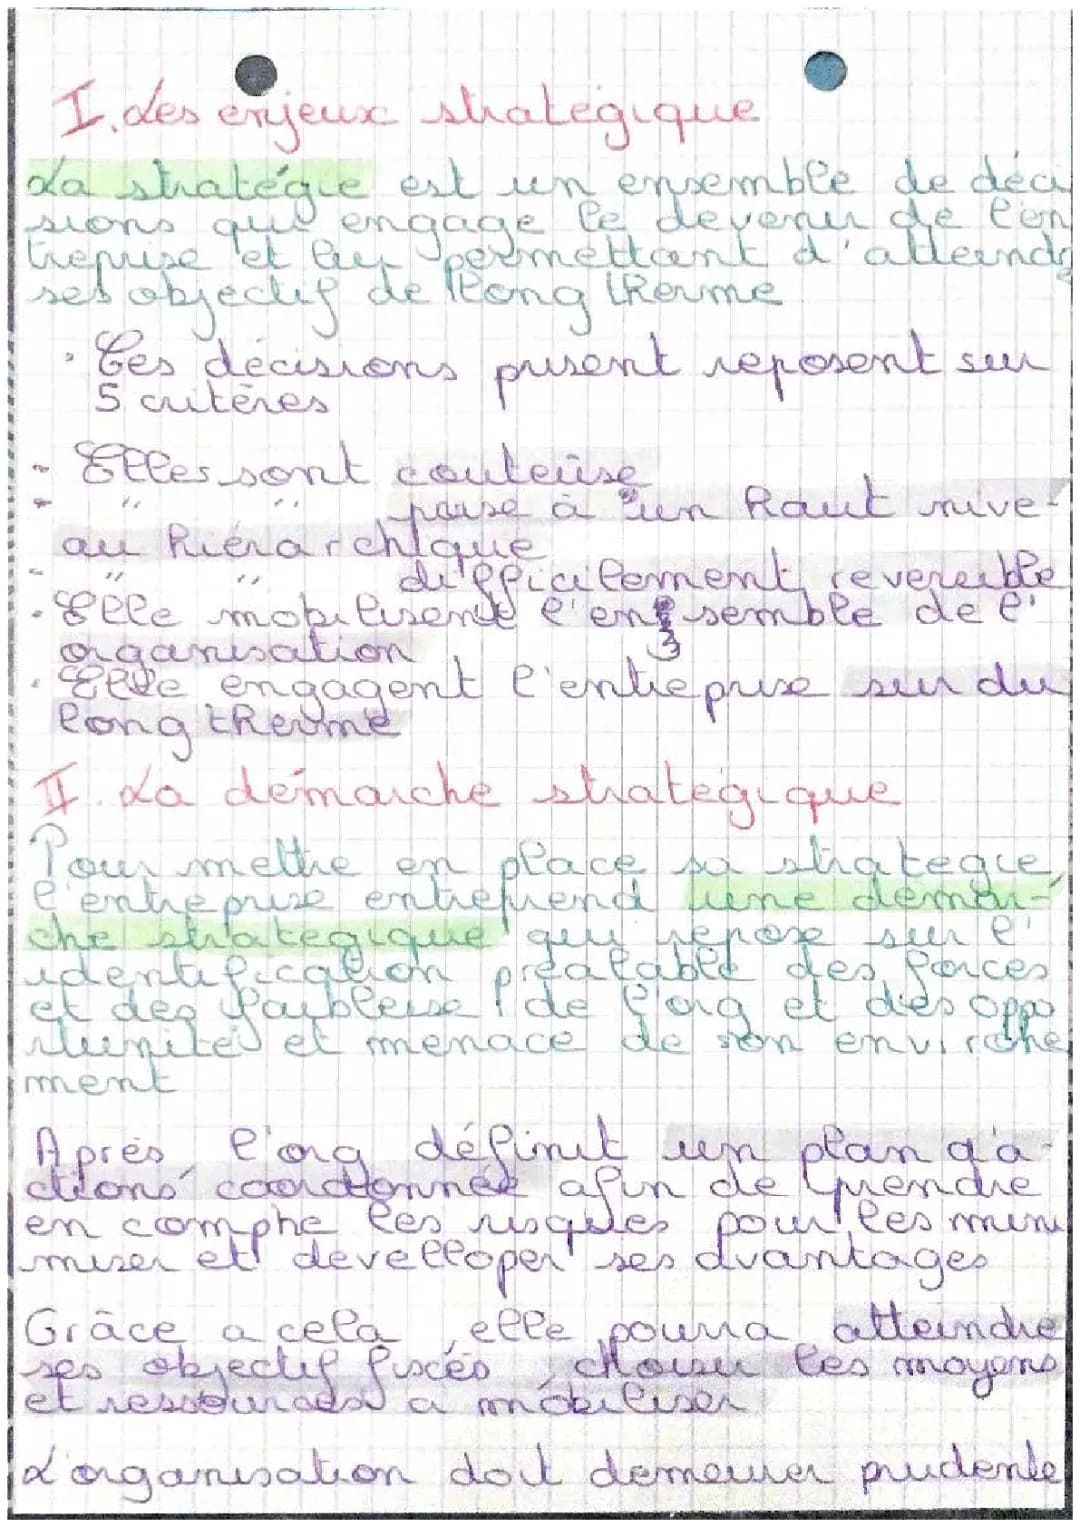 I. Les enjeux stratégique
La stratégie est un ensemble de déci
sions qui engage le devenir de l'en
treprise et lui permettant d'atteindre
ses objectif de long therme
• Ces décisions prisent reposent sur
5 critères
- Elles sont couteuse
- " " prise à un haut nive-
au hiérarchique
- " " difficilement reversible
- Elle mobilisent l'ensemble de l'
organisation
- Elle engagent l'entreprise sur du
long therme
II. La démarche stratégique
Pour mettre en place sa strategie,
l'entreprise entreprend une démar-
che strategique qui repose sur l'
identification préalable des forces
et des faiblesse de l'org et des oppo
rtunité et menace de son environe
ment
Après, l'org définit un plan d'a-
ctions coordonnée afin de prendre
en compte les risques pour les mini
miser et développer ses avantages
Grâce a cela, elle pourra atteindre
ses objectif fixés, choisir les moyens
et ressources a mobiliser
L'organisation doit demeurer prudente